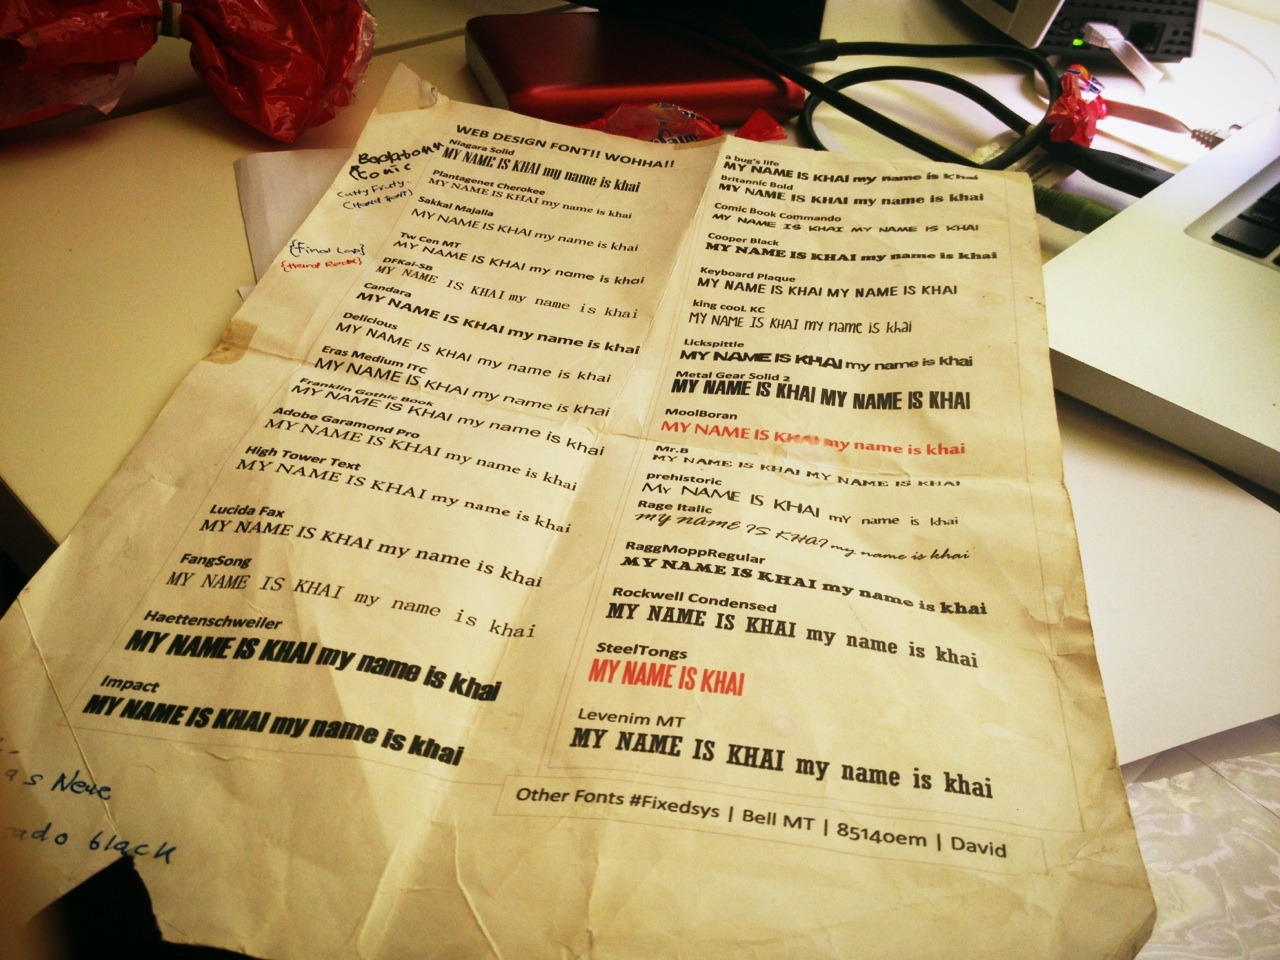 WEB DESIGN FONT!! WOHHA!!
Niagara Solid
MY NAME IS KHAI my name is khai
Plantagenet Cherokee
MY NAME IS KHAI my name is khai
Sakkal Majalla
MY NAME IS KHAI my name is khai
Tw Cen MT
MY NAME IS KHAI my name is khai
DFKai-SB
MY NAME IS KHAI my name is khai
Candara
MY NAME IS KHAI my name is khai
Delicious
MY NAME IS KHAI my name is khai
Eras Medium ITC
MY NAME IS KHAI my name is khai
Franklin Gothic Book
MY NAME IS KHAI my name is khai
Adobe Garamond Pro
MY NAME IS KHAI my name is khai
High Tower Text
MY NAME IS KHAI my name is khai
Lucida Fax
MY NAME IS KHAI my name is khai
FangSong
MY NAME IS KHAI my name is khai
Haettenschweiler
MY NAME IS KHAI my name is khai
Impact
MY NAME IS KHAI my name is khai
a bug's life
MY NAME IS KHAI my name is khai
Britannic Bold
MY NAME IS KHAI my name is khai
Comic Book Commando
MY NAME IS KHAI MY NAME IS KHAI
Cooper Black
MY NAME IS KHAI my name is khai
Keyboard Plaque
MY NAME IS KHAI MY NAME IS KHAI
king cooL KC
MY NAME IS KHAI my name is khai
Lickspittle
MY NAME IS KHAI my name is khai
Metal Gear Solid 2
MY NAME IS KHAI MY NAME IS KHAI
MoolBoran
MY NAME IS KHAI my name is khai
Mr.B
MY NAME IS KHAI MY NAME IS KHAI
prehistoric
MY NAME IS KHAI my name is khai
Rage Italic
MY NAME IS KHAI my name is khai
RaggMoppRegular
MY NAME IS KHAI my name is khai
Rockwell Condensed
MY NAME IS KHAI my name is khai
SteelTongs
MY NAME IS KHAI
Levenim MT
MY NAME IS KHAI my name is khai
Other Fonts #Fixedsys | Bell MT | 8514oem | David
Comic
{Final Lap}
{Hard Rock}
as Neue
ado black